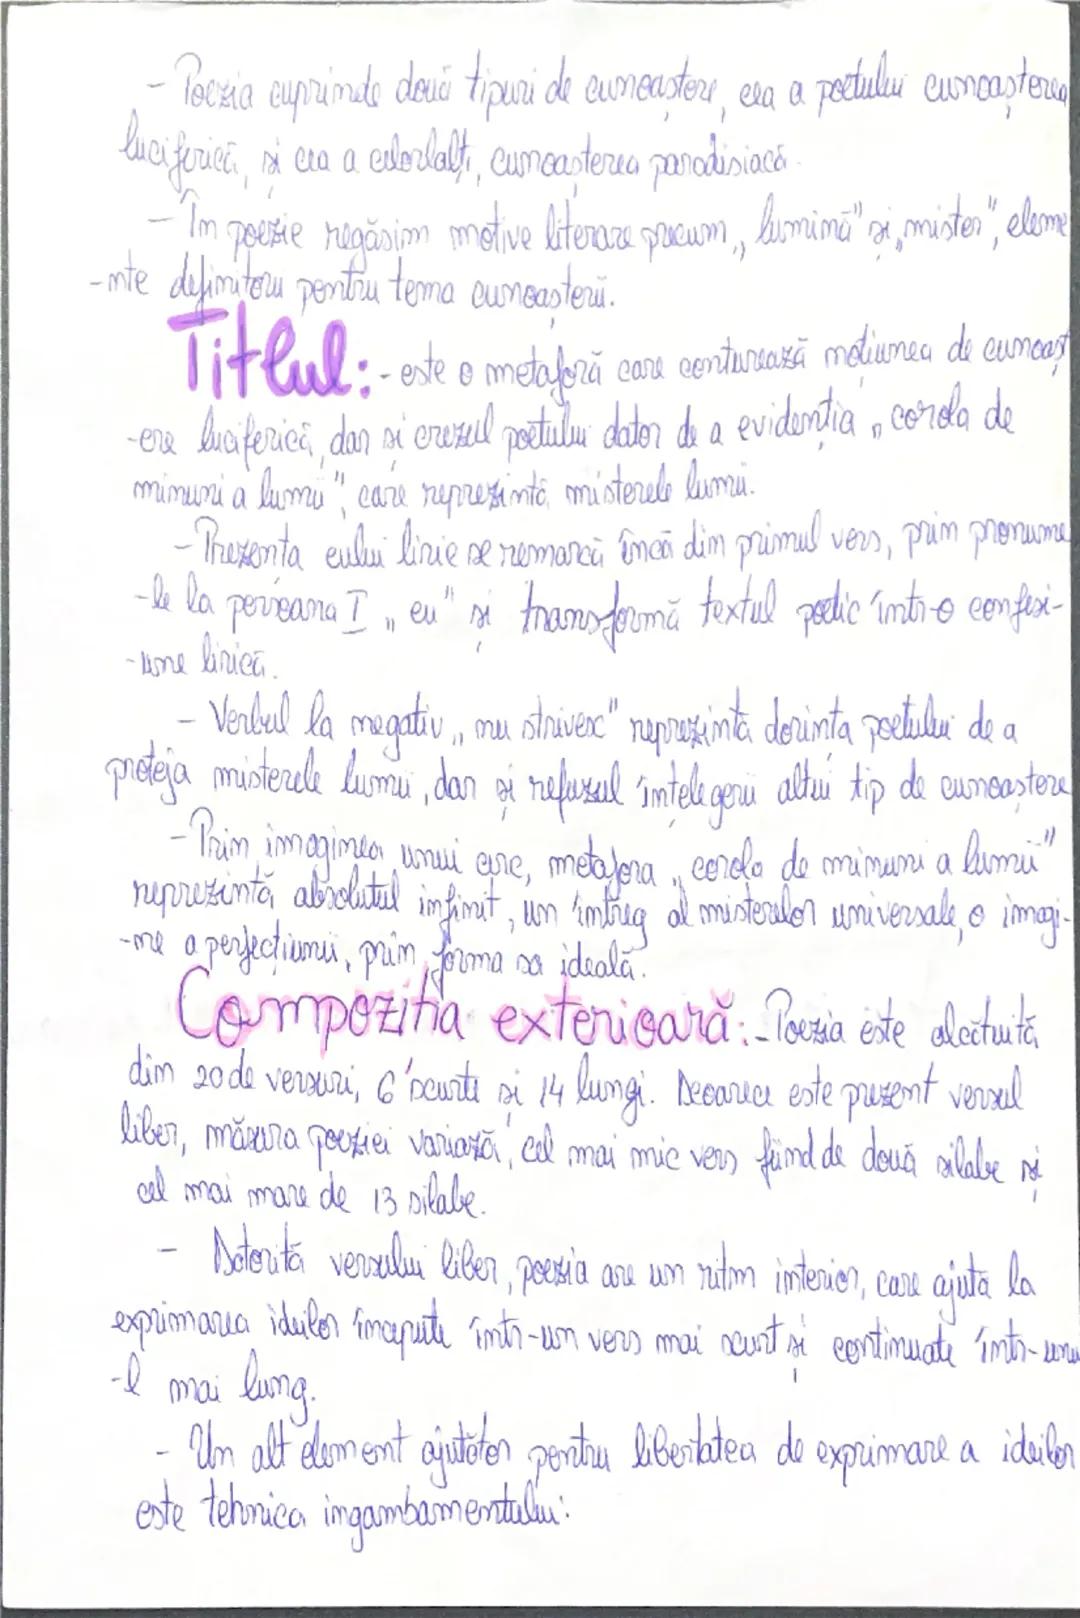 - Poezia cuprinde două tipuri de cunoaștere, cea a poetului cunoașterea
luciferică, și cea a celorlalți, cunoașterea paradisiacă.
- În poezie regăsim motive literare precum „lumină" și „mister", eleme
-nte definitorii pentru tema cunoașterii.
Titlul: - este o metaforă care conturează noțiunea de cunoașt
-ere luciferică, dar și crezul poetului dator de a evidenția „corola de
minuni a lumii", care reprezintă misterele lumii.
- Prezenta eului liric se remarcă încă din primul vers, prin pronume
-le la persoana I „eu" și transformă textul poetic într-o confesi-
-une lirică.
- Verbul la negativ „nu strivesc" reprezintă dorința poetului de a
proteja misterele lumii, dar și refuzul înțelegerii altui tip de cunoaștere
- Prin imaginea unui cerc, metafora „corola de minuni a lumii"
reprezintă absolutul infinit, un întreg al misterelor universale, o imagi-
-ne a perfecțiunii, prin forma sa ideală.
Compoziția exterioară: - Poezia este alcătuită
din 20 de versuri, 6 scurte și 14 lungi. Deoarece este prezent versul
liber, măsura poeziei variază, cel mai mic vers fiind de două silabe și
cel mai mare de 13 silabe.
- Datorită versului liber, poezia are un ritm interior, care ajută la
exprimarea ideilor începute într-un vers mai scurt și continuate într-unu
-l mai lung.
- Un alt element ajutător pentru libertatea de exprimare a ideilor
este tehnica ingambamentului: